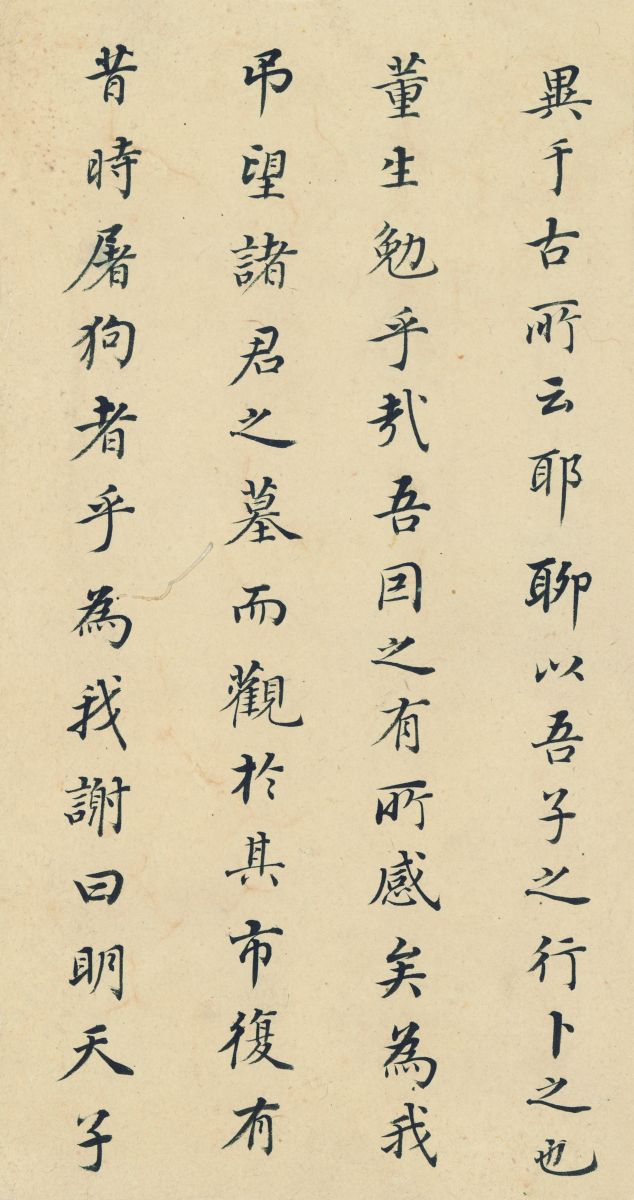 異于古所云耶聊以吾子之行卜之也
董生勉乎哉吾囙之有所感矣為我
弔望諸君之墓而觀於其市復有
昔時屠狗者乎為我謝曰明天子